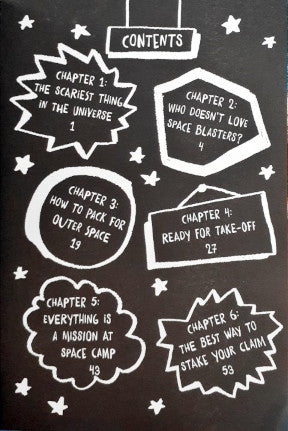 CONTENTS
CHAPTER 1:
THE SCARIEST THING
IN THE UNIVERSE
1
CHAPTER 2:
WHO DOESN'T LOVE
SPACE BLASTERS?
4
CHAPTER 3:
HOW TO PACK FOR
OUTER SPACE
19
CHAPTER 4:
READY FOR TAKE-OFF
27
CHAPTER 5:
EVERYTHING IS
A MISSION AT
SPACE CAMP
43
CHAPTER 6:
THE BEST WAY TO
STAKE YOUR CLAIM
53